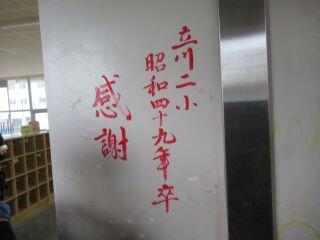 立川二小
昭和四十九年卒
感謝